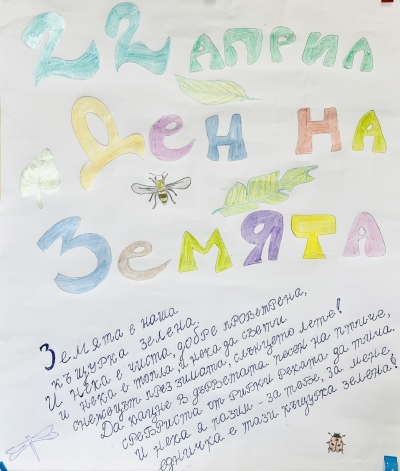 22 АПРИЛ
ДЕН НА
ЗЕМЯТА
Земята е наша
къщурка зелена.
И нека е чиста, добре проветрена,
и нека е топла, и нека да свети
снежецът през зимата, слънцето лете!
Да кацне в дърветата песен на птиче,
сребриста от рибки реката да тича.
И нека я пазим - за тебе, за мене,
едничка е тази къщурка зелена!